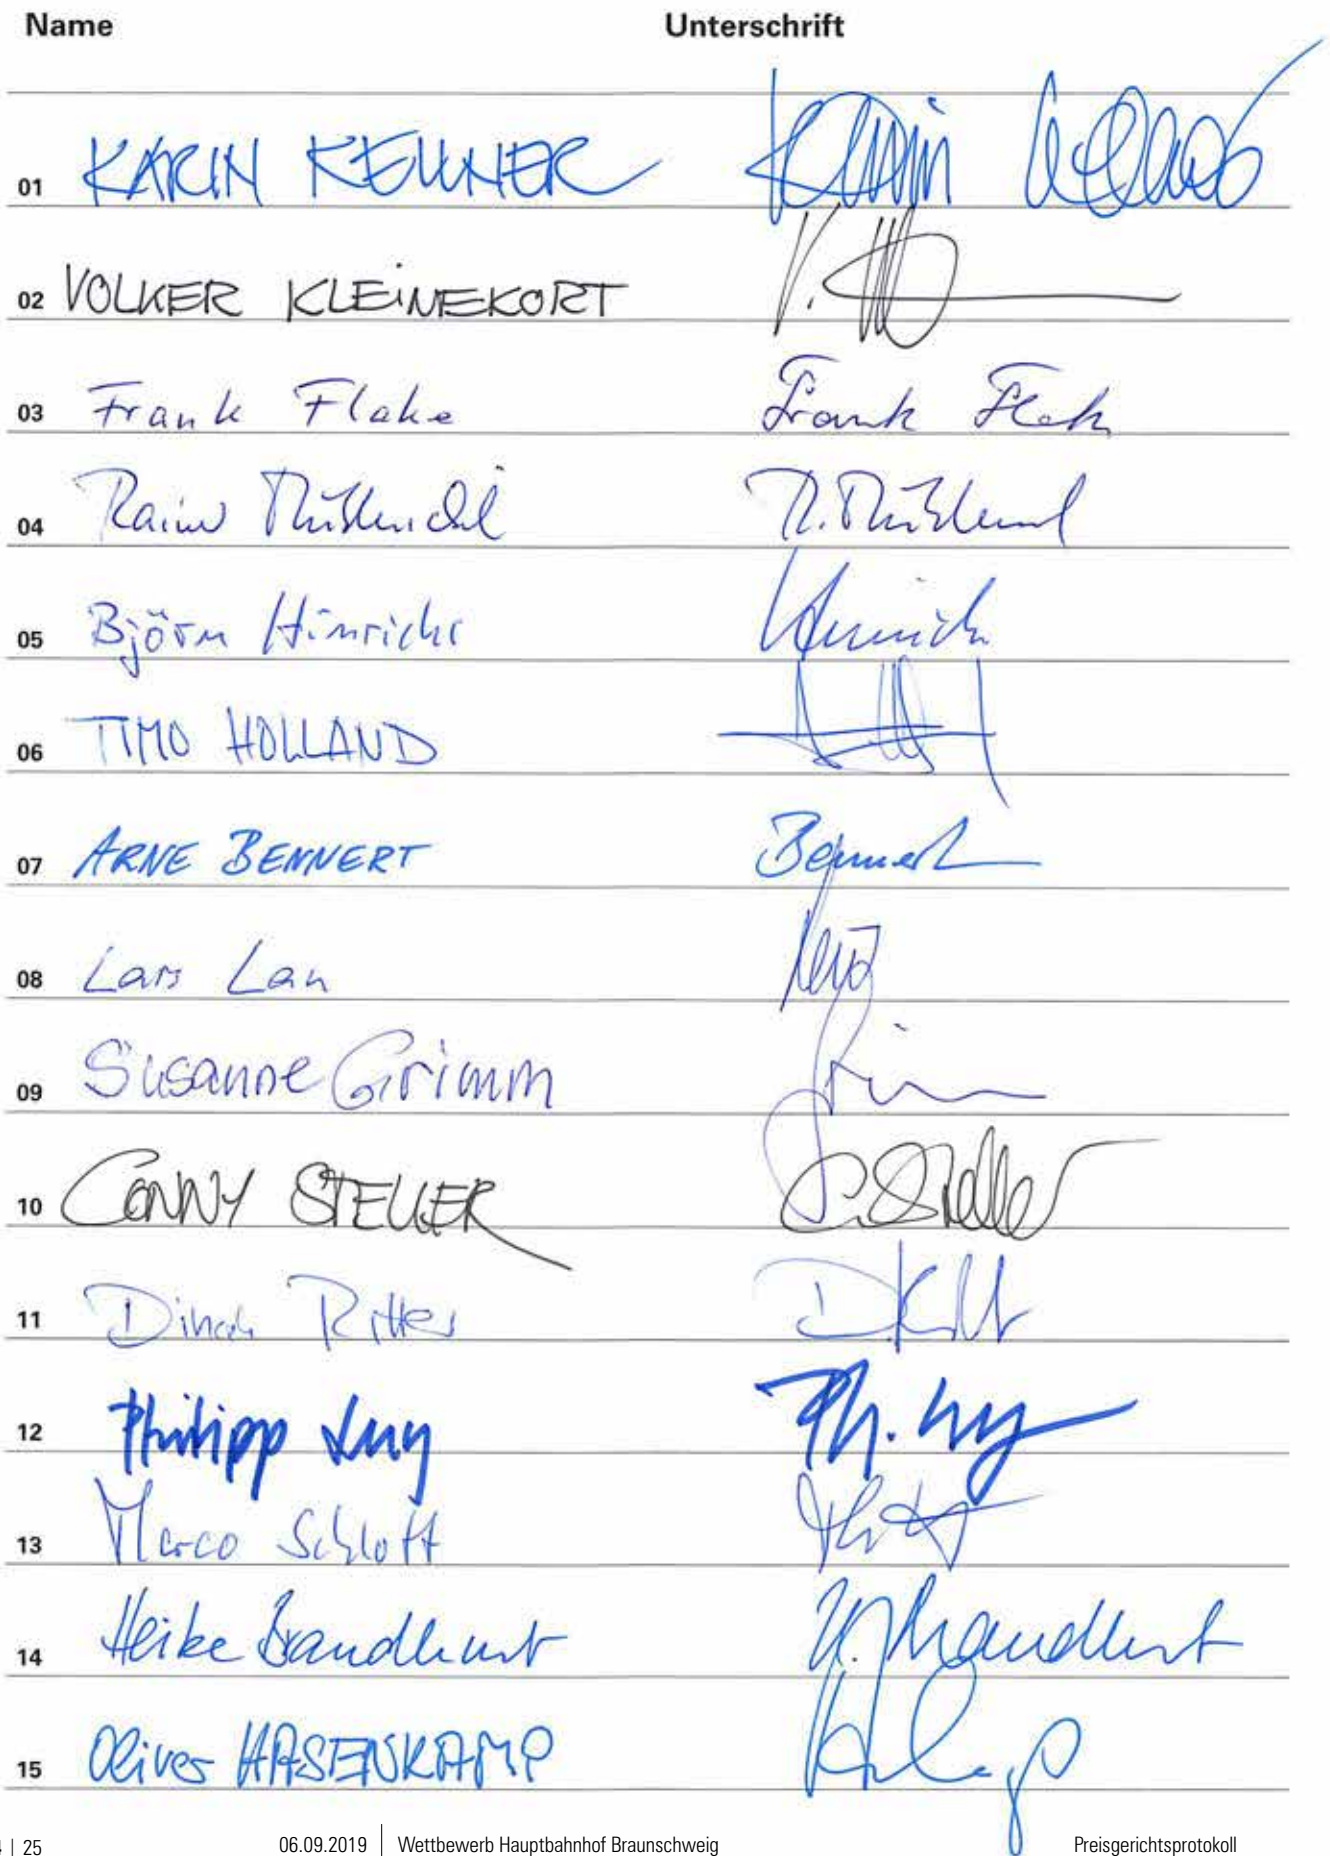 Name Unterschrift
01 KARIN KELLNER Karin Kellner
02 VOLKER KLEINEKORT V.
03 Frank Flake Frank Flak
04 Rainer R.
05 Björn Hinrichs Hinrichs
06 TIMO HOLLAND
07 ARNE BENNERT Bennert
08 Lars Lau
09 Susanne Grimm
10 CONNY STELLER C. Steller
11 Dinah Ritter
12 Philipp Luy Ph. Luy
13 Marco Schlott
14 Heike Brandhurst H. Brandhurst
15 Oliver HASENKAMP
| 25 06.09.2019 | Wettbewerb Hauptbahnhof Braunschweig Preisgerichtsprotokoll